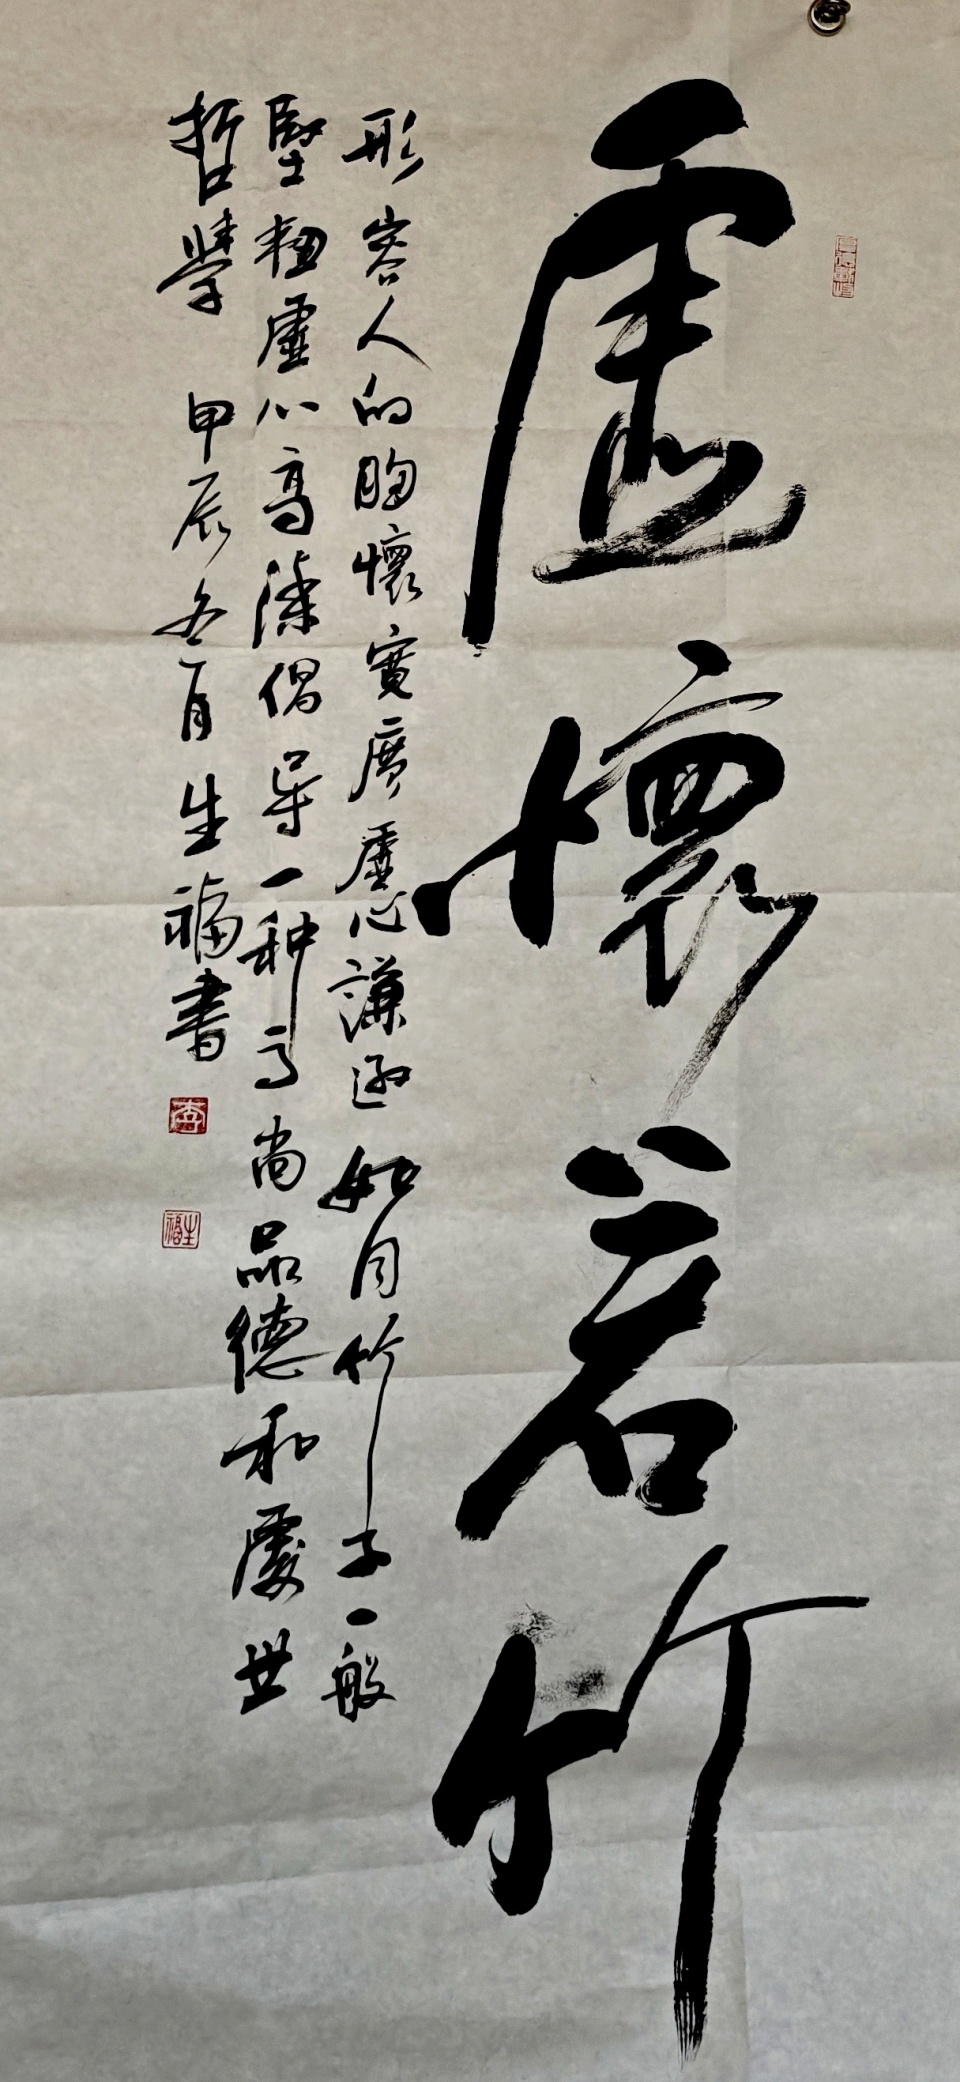 虛懷若竹
形容人的胸懷寬廣虛心謙遜如同竹子一般
堅韌虛心高潔倡导一种高尚品德和處世
哲學 甲辰冬月生福書
李
生福